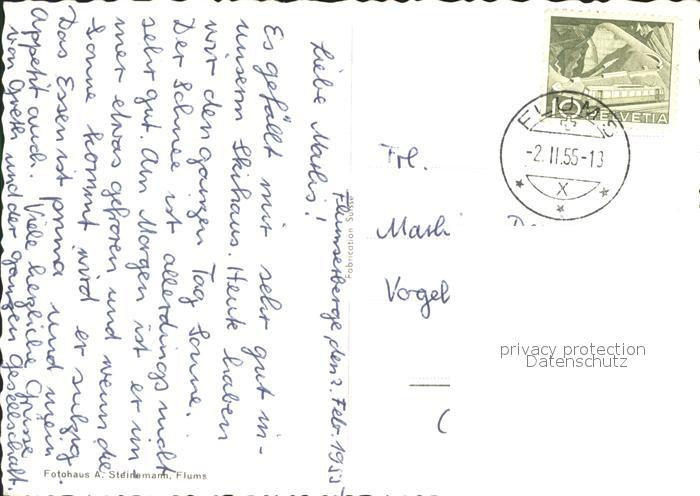 Flumserberge, den 2. Feb. 1955
Liebe Marlis!
Es gefällt mir sehr gut in-
unserm Skihaus. Heute haben
wir den ganzen Tag Sonne.
Der Schnee ist allerdings nicht
sehr gut. Am Morgen ist er im-
mer etwas gefroren und wenn die
Sonne kommt wird er sulzig.
Das Essen ist prima und mein
Appetit auch. Viele herzliche Grüsse
von Greth und der ganzen Gesellschaft.
Fotohaus A. Steinemann, Flums
Fabrication Suisse
10 HELVETIA
FLUMS
-2.II.55-13
X
Frl.
Marli
Vogel
privacy protection
Datenschutz